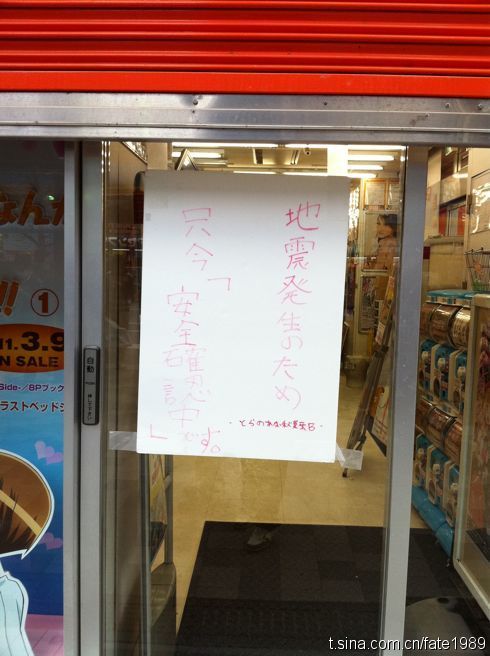 地震発生のため
只今「安全確認中です。」
・とらのあな秋葉原B・
なんだ
!! ①
11.3.9
N SALE
Side-/8Pブック
ラストベッドシ
自動
押して下さい
t.sina.com.cn/fate1989